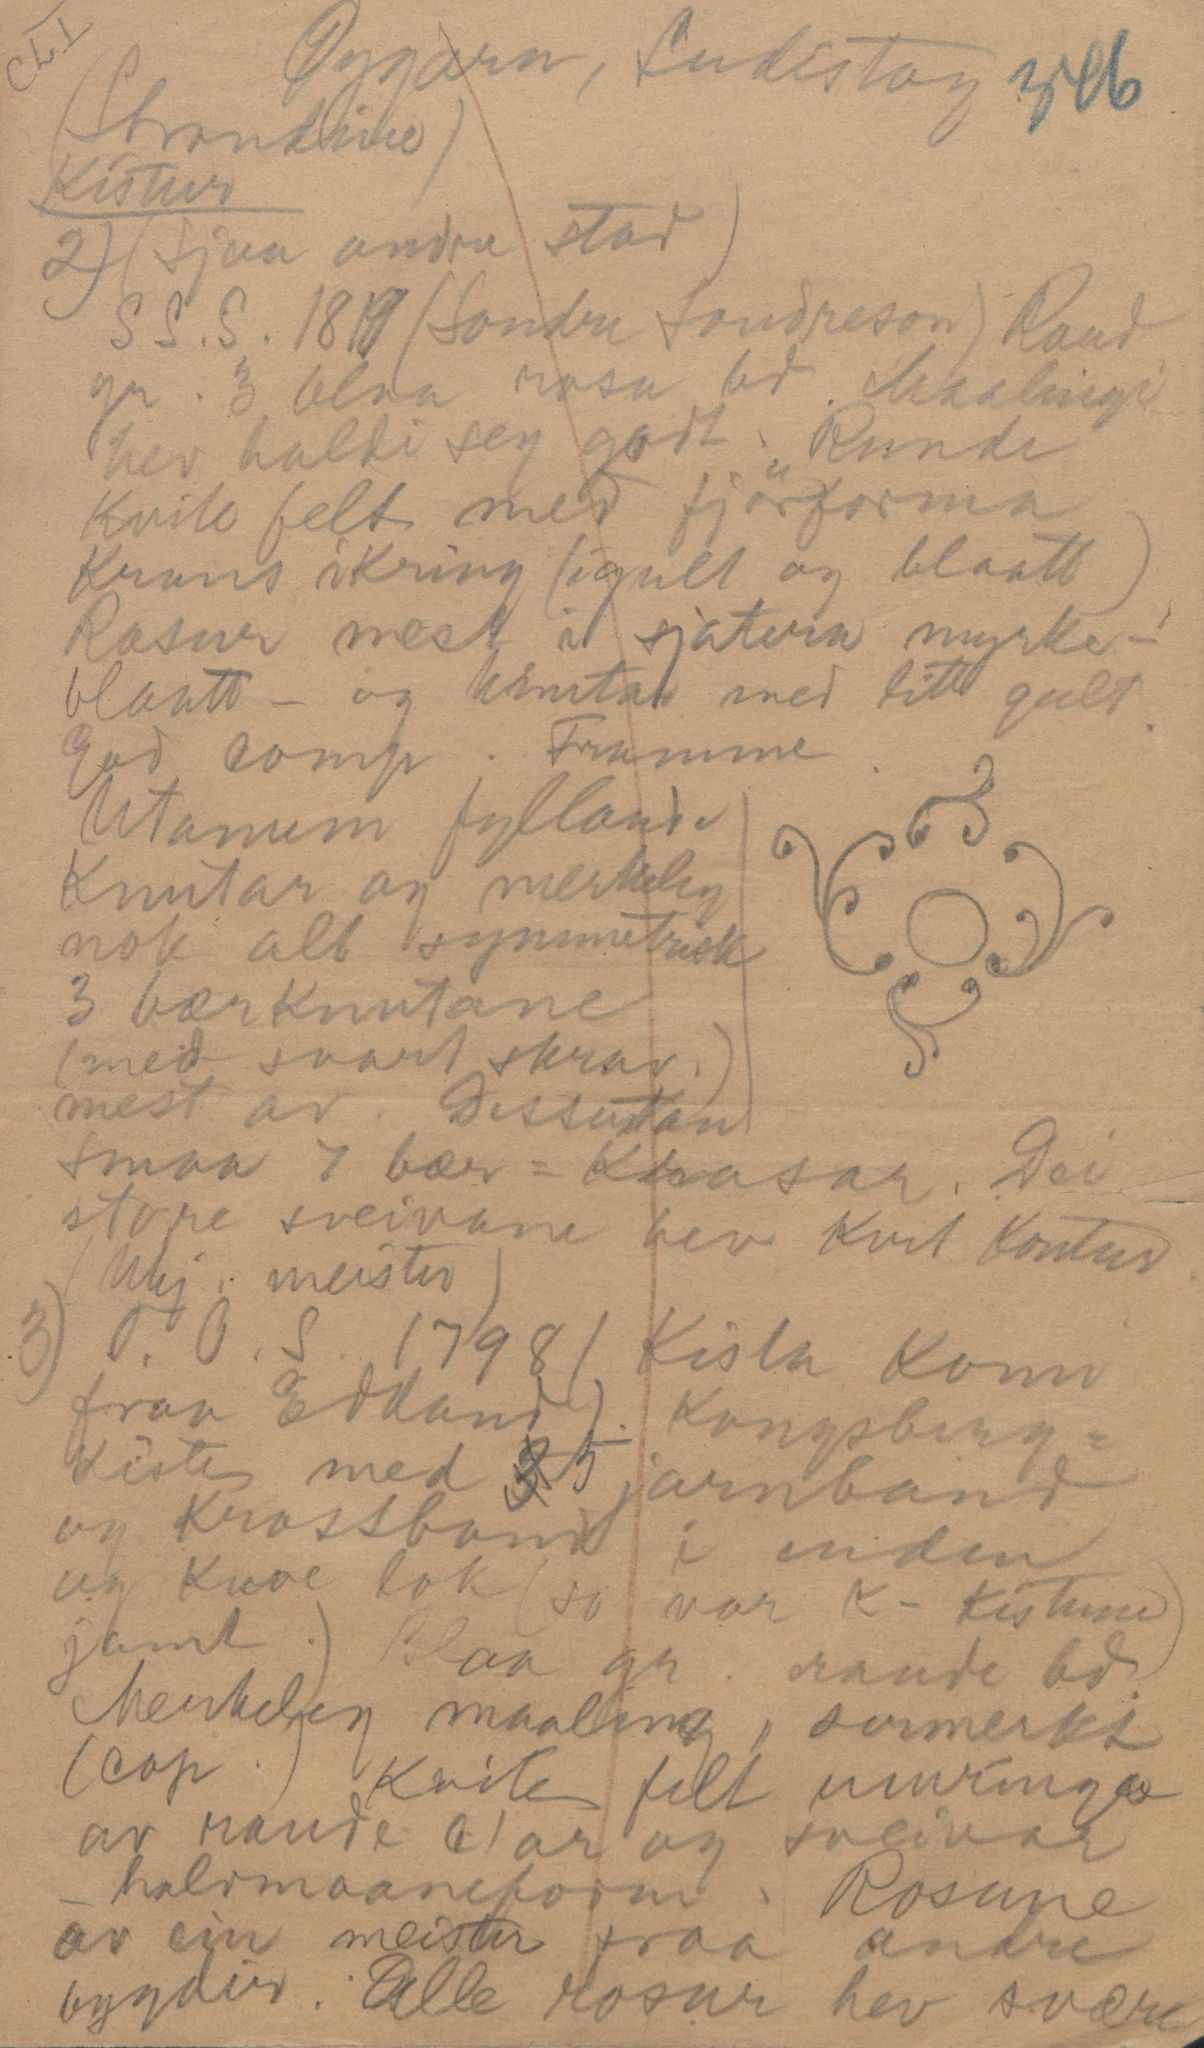 Øygarn, Ludistog
(Strondine)
Kistur
2) (Sjaa andre stad)
S S. S. 1819 (Sondre Sondreson) Raud
gr. 3 blaa rosu bd. Maalingi
hev haldi seg godt. Runde
Kvite felt med fjörforma
Krans ikring (i gult og blaatt)
Rosur mest i sjatera myrke-
blaatt - og knutar med litt gult.
God comp. Framme.
Utanum fyllande
Knutar og merkeleg
nok alt symmetrisk
3 bærknutane
(med svart skrav.)
mest av. Dessutan
smaa 7 bær = Krasar. Dei
store sveivane hev kvit kontur
meister)
3) T. O. S. 1798 (Kista komi
fraa Edland). Kongsberg=
Kiste med 5 jarnband
og Krossband i enden
og kuve lok (so var K- Kistune
jamt.) Blaa gr. raude bd.
Merkeleg maaling, sermerkt
(cop.) Kvite felt umringa
av raude C'ar og sveivar
- halvmaaneform. Rosune
av ein meister fraa andre
bygder. Alle rosur hev svære